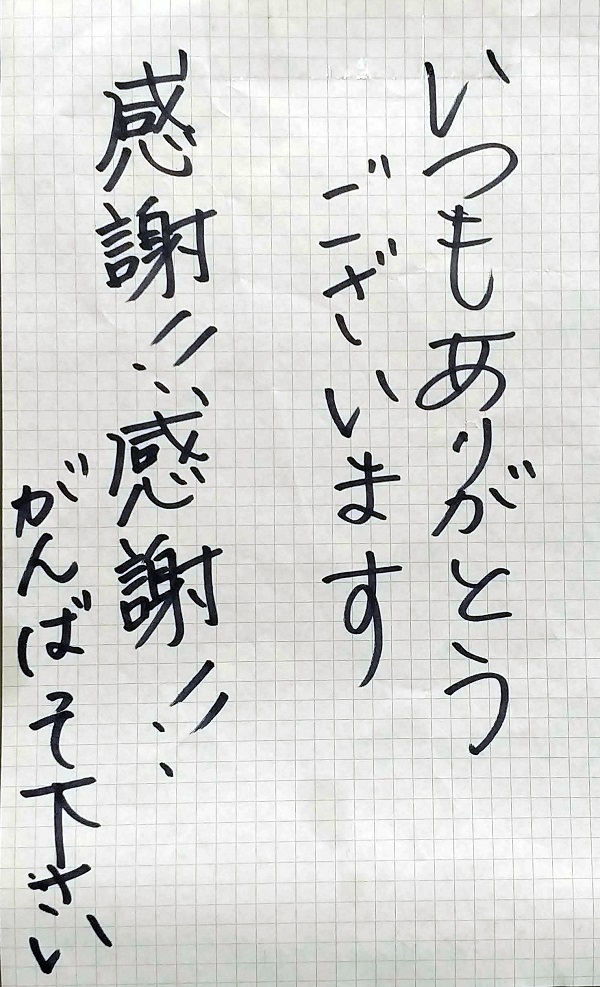 いつもありがとう
ございます
感謝!!!感謝!!
がんばそ下さい